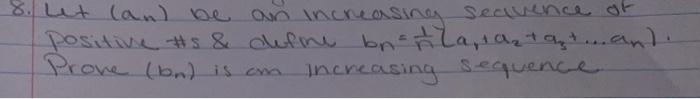 8. Let (an) be an increasing sequence of
positive #s & define bn = 1/n (a1+a2+a3+...an).
Prove (bn) is an increasing sequence